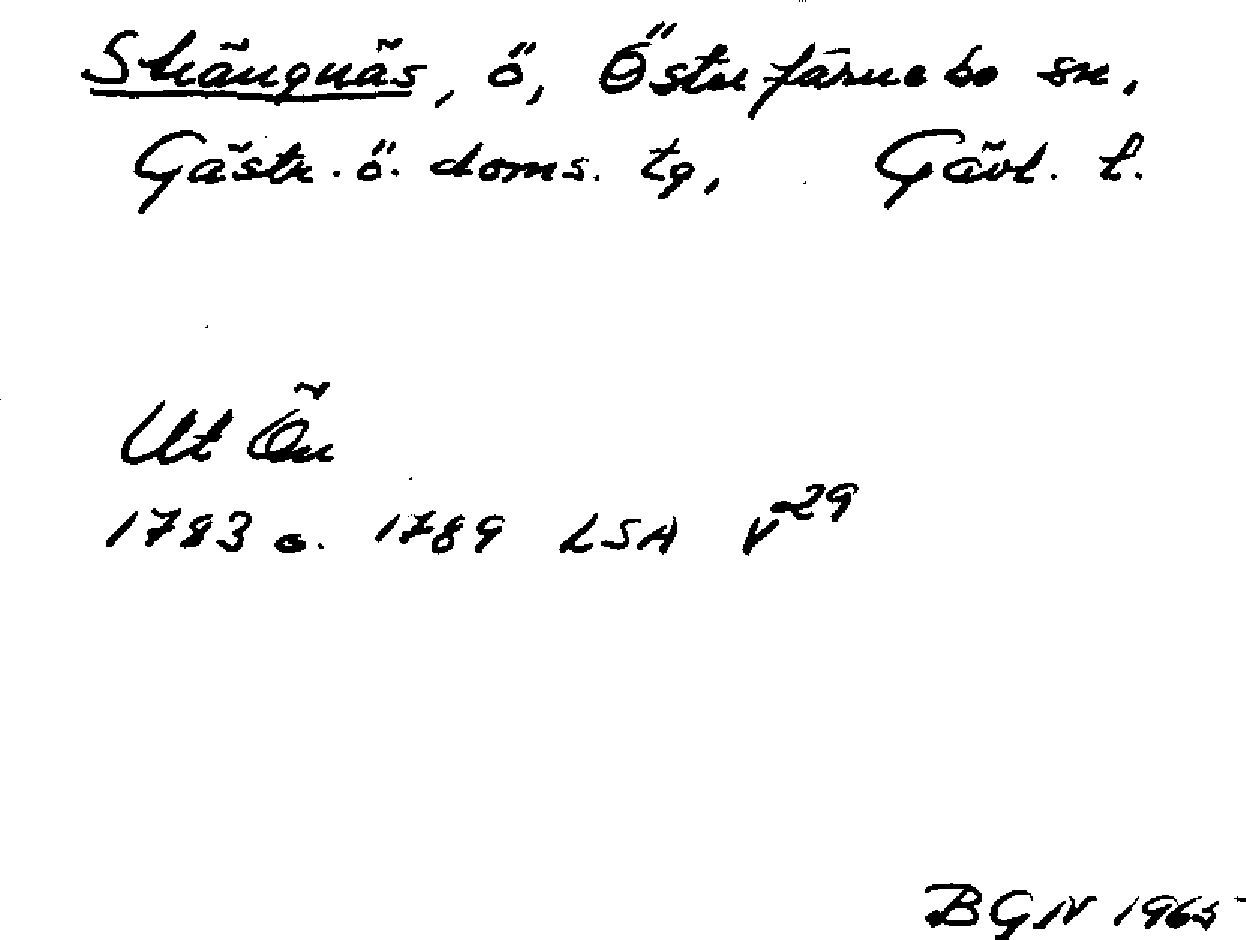 Strängnäs, ö, Österfärnebo sn,
Gästr. ö. doms. tg, Gävl. l.
Ut Ön
1783 o. 1789 LSA V29
BGN 1965